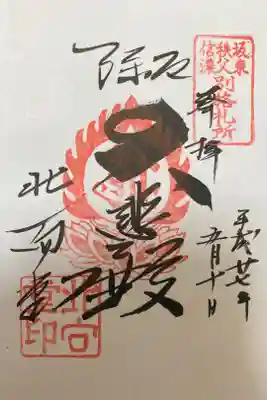 坂東
秩父
信濃
別格札所
奉拝
平成廿七年
五月十日
厄除
大悲殿
北向
北向
堂印